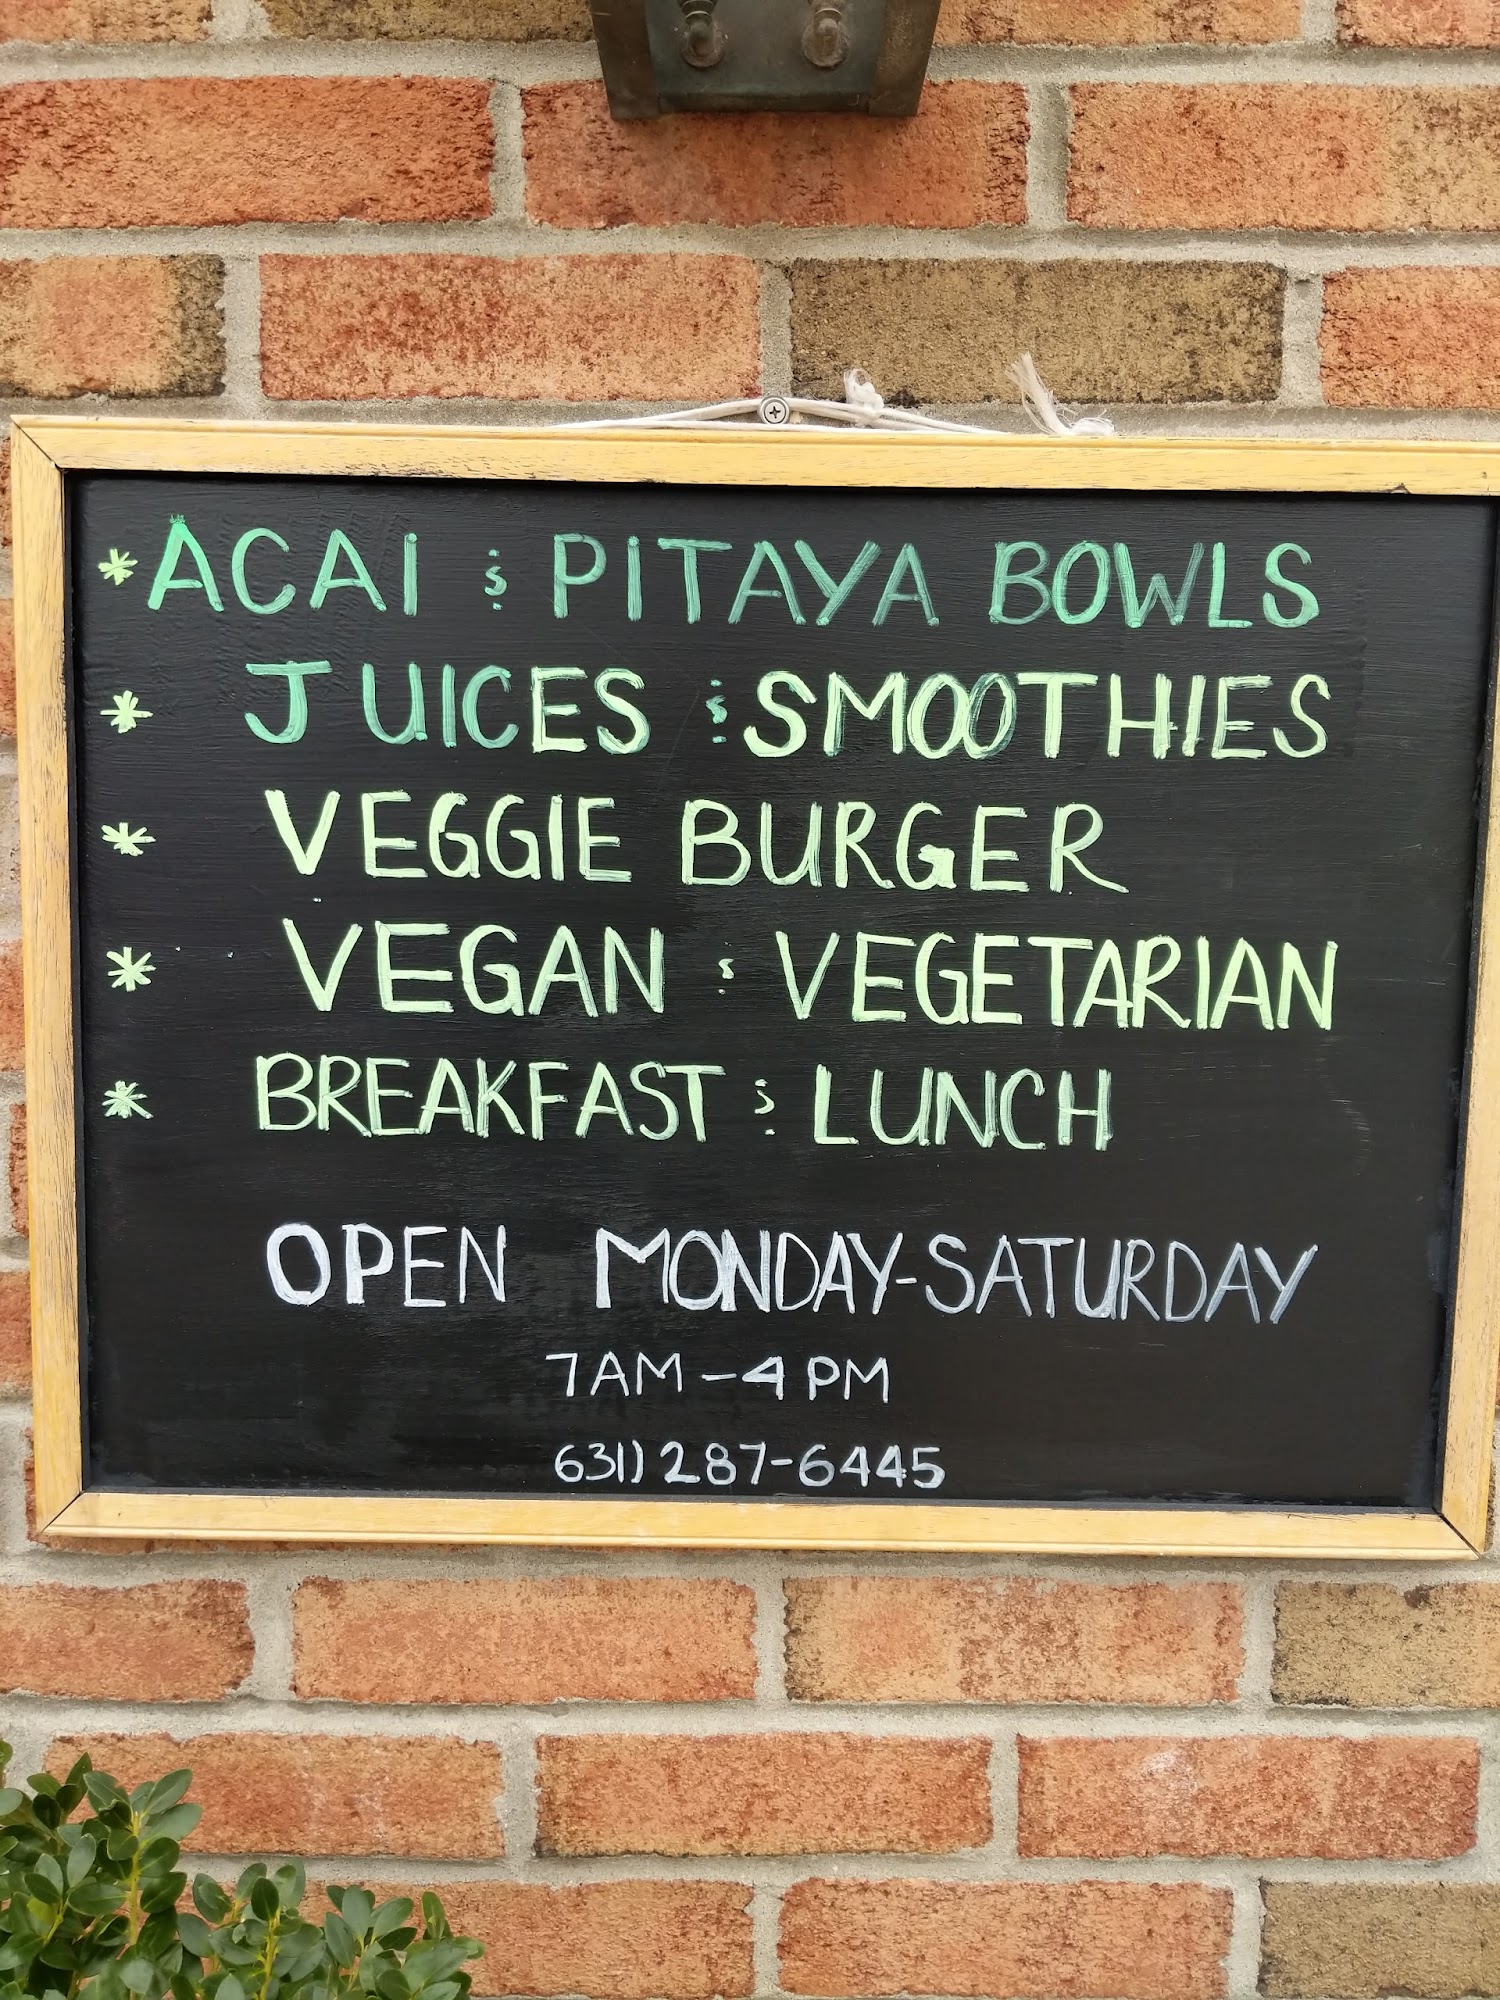 * ACAI & PITAYA BOWLS
* JUICES & SMOOTHIES
* VEGGIE BURGER
* VEGAN & VEGETARIAN
* BREAKFAST & LUNCH
OPEN MONDAY-SATURDAY
7AM-4PM
631) 287-6445